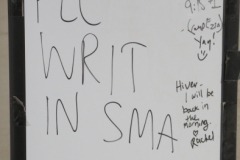 WRIT
IN SMA
Yay!
Hiver.
I will
be
back in
the
morning.
♡ Rachel